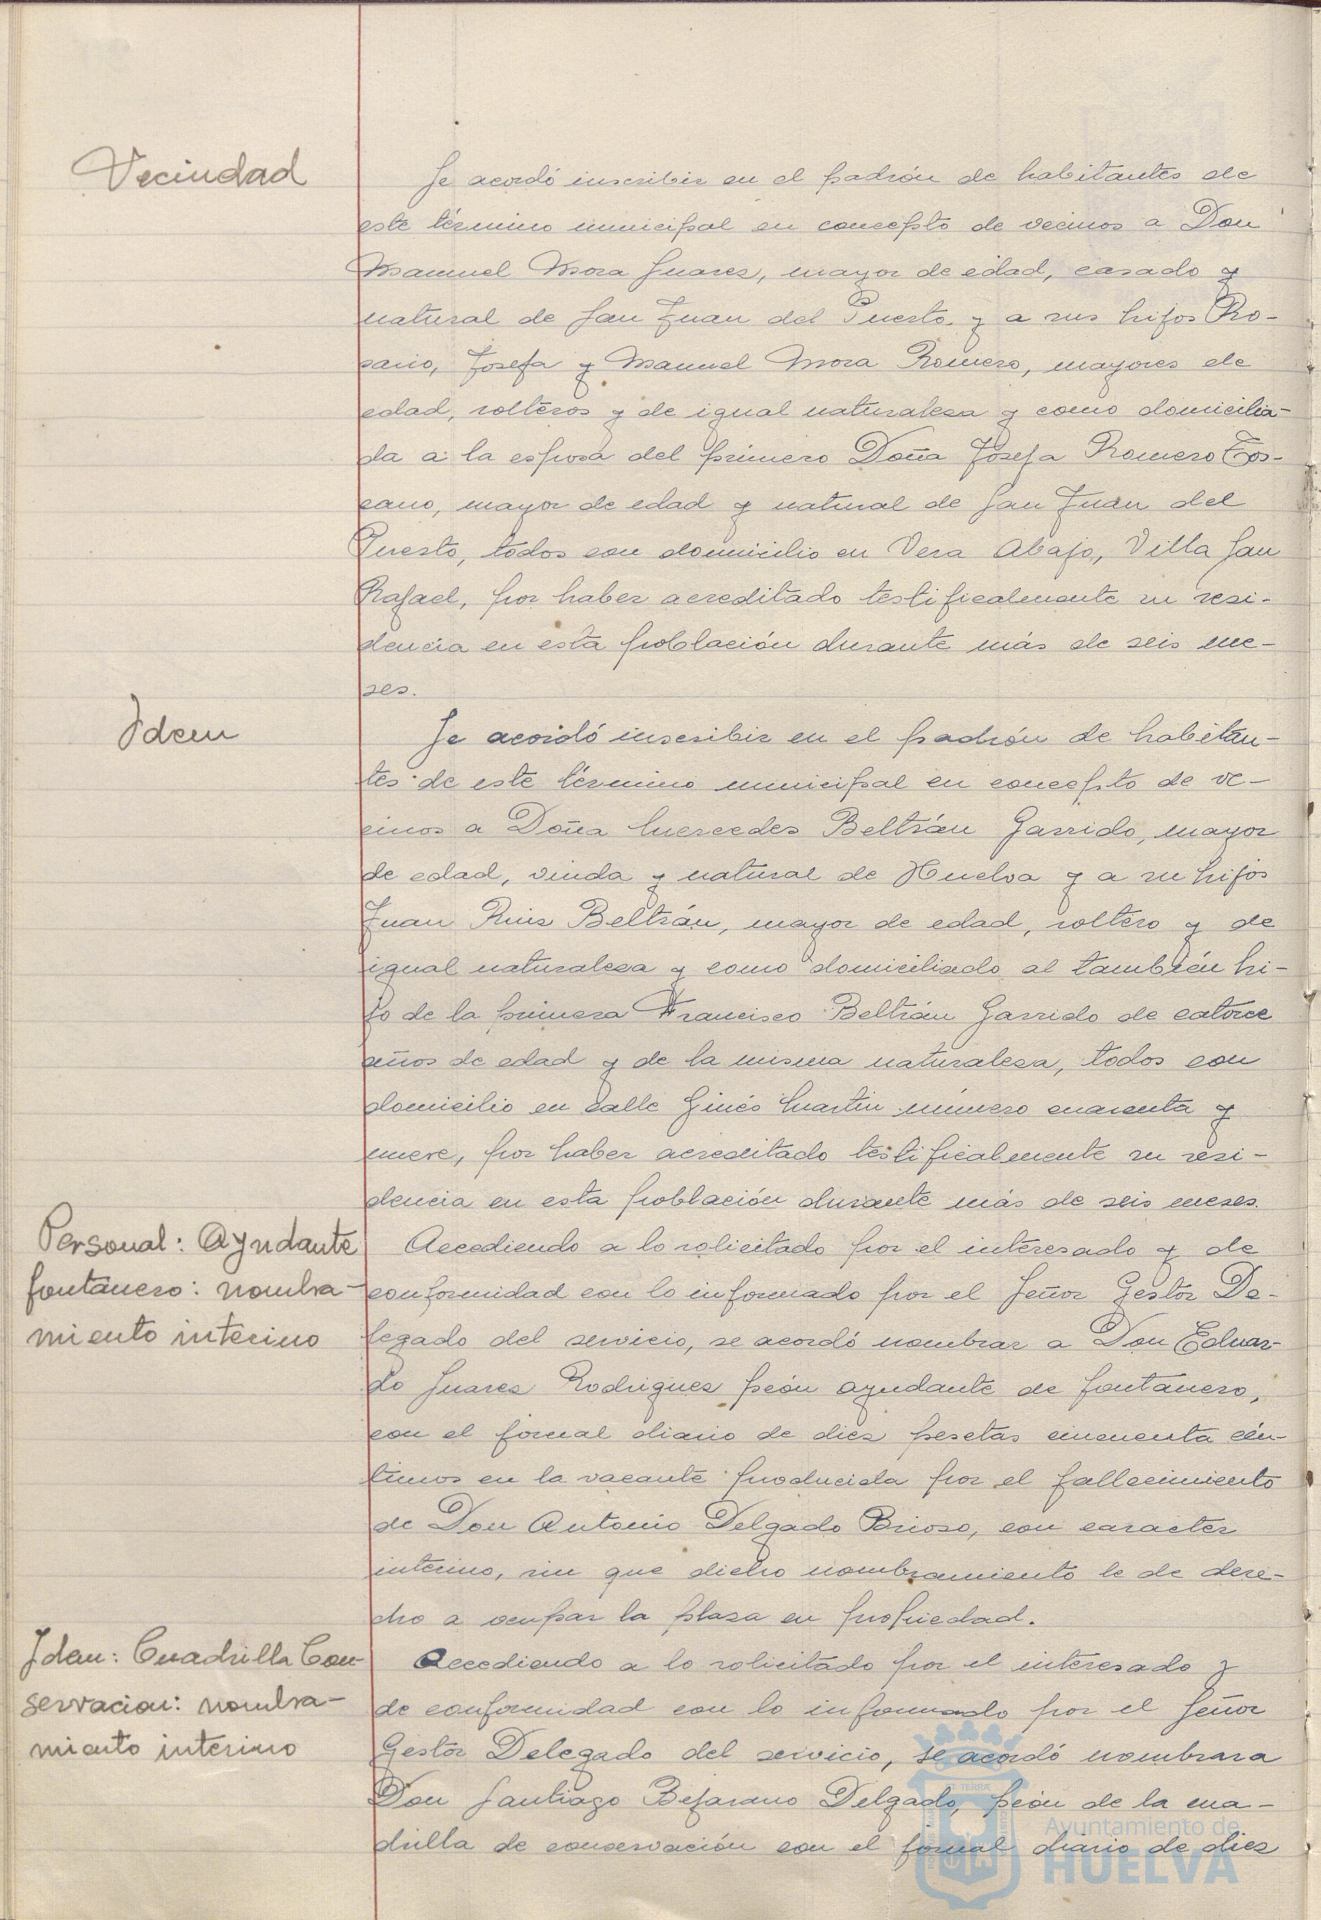 Vecindad
Se acordó inscribir en el padrón de habitantes de
este término municipal en concepto de vecinos a Don
Manuel Mora Juarez, mayor de edad, casado y
natural de San Juan del Puerto y a sus hijos Ro-
sario, Josefa y Manuel Mora Romero, mayores de
edad, solteros y de igual naturaleza y como domicilia-
da a la esposa del primero Doña Josefa Romero Tos-
cano, mayor de edad y natural de San Juan del
Puerto, todos con domicilio en Vera Abajo, Villa San
Rafael, por haber acreditado testificalmente su resi-
dencia en esta población durante más de seis me-
ses.
Idem
Se acordó inscribir en el padrón de habitan-
tes de este término municipal en concepto de ve-
cinos a Doña Mercedes Beltrán Garrido, mayor
de edad, viuda y natural de Huelva y a su hijos
Juan Ruiz Beltrán, mayor de edad, soltero y de
igual naturaleza y como domiciliado al también hi-
jo de la primera Francisco Beltrán Garrido de catorce
años de edad y de la misma naturaleza, todos con
domicilio en calle Ginés Martin número cuarenta y
nueve, por haber acreditado testificalmente su resi-
dencia en esta población durante más de seis meses.
Personal: Ayudante
fontanero: nombra-
miento interino
Accediendo a lo solicitado por el interesado y de
conformidad con lo informado por el Señor Gestor De-
legado del servicio, se acordó nombrar a Don Eduar-
do Juarez Rodriguez peón ayudante de fontanero,
con el jornal diario de diez pesetas cincuenta cén-
timos en la vacante producida por el fallecimiento
de Don Antonio Delgado Brioso, con caracter
interino, sin que dicho nombramiento le de dere-
cho a ocupar la plaza en propiedad.
Idem: Cuadrilla Con-
servacion: nombra-
miento interino
Accediendo a lo solicitado por el interesado y
de conformidad con lo informado por el Señor
Gestor Delegado del servicio, se acordó nombrar a
Don Santiago Bejarano Delgado, peón de la cua-
drilla de conservación con el jornal diario de diez
Ayuntamiento de
HUELVA